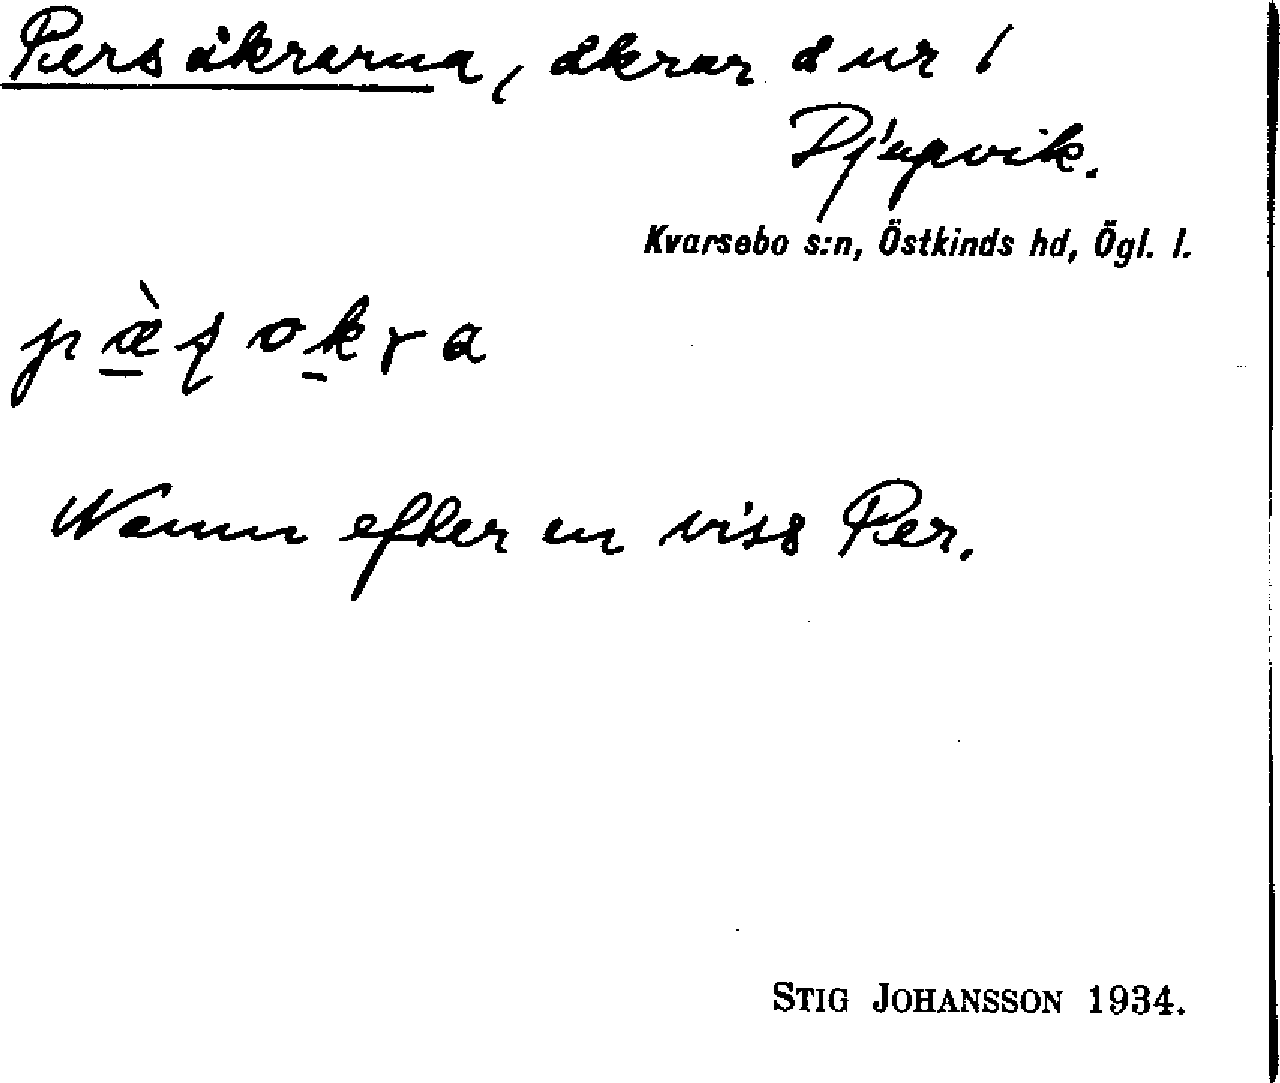 Persåkrarna, åkrar å ur 1
Djupvik.
Kvarsebo s:n, Östkinds hd, Ögl. l.
Namn efter en viss Per.
STIG JOHANSSON 1934.